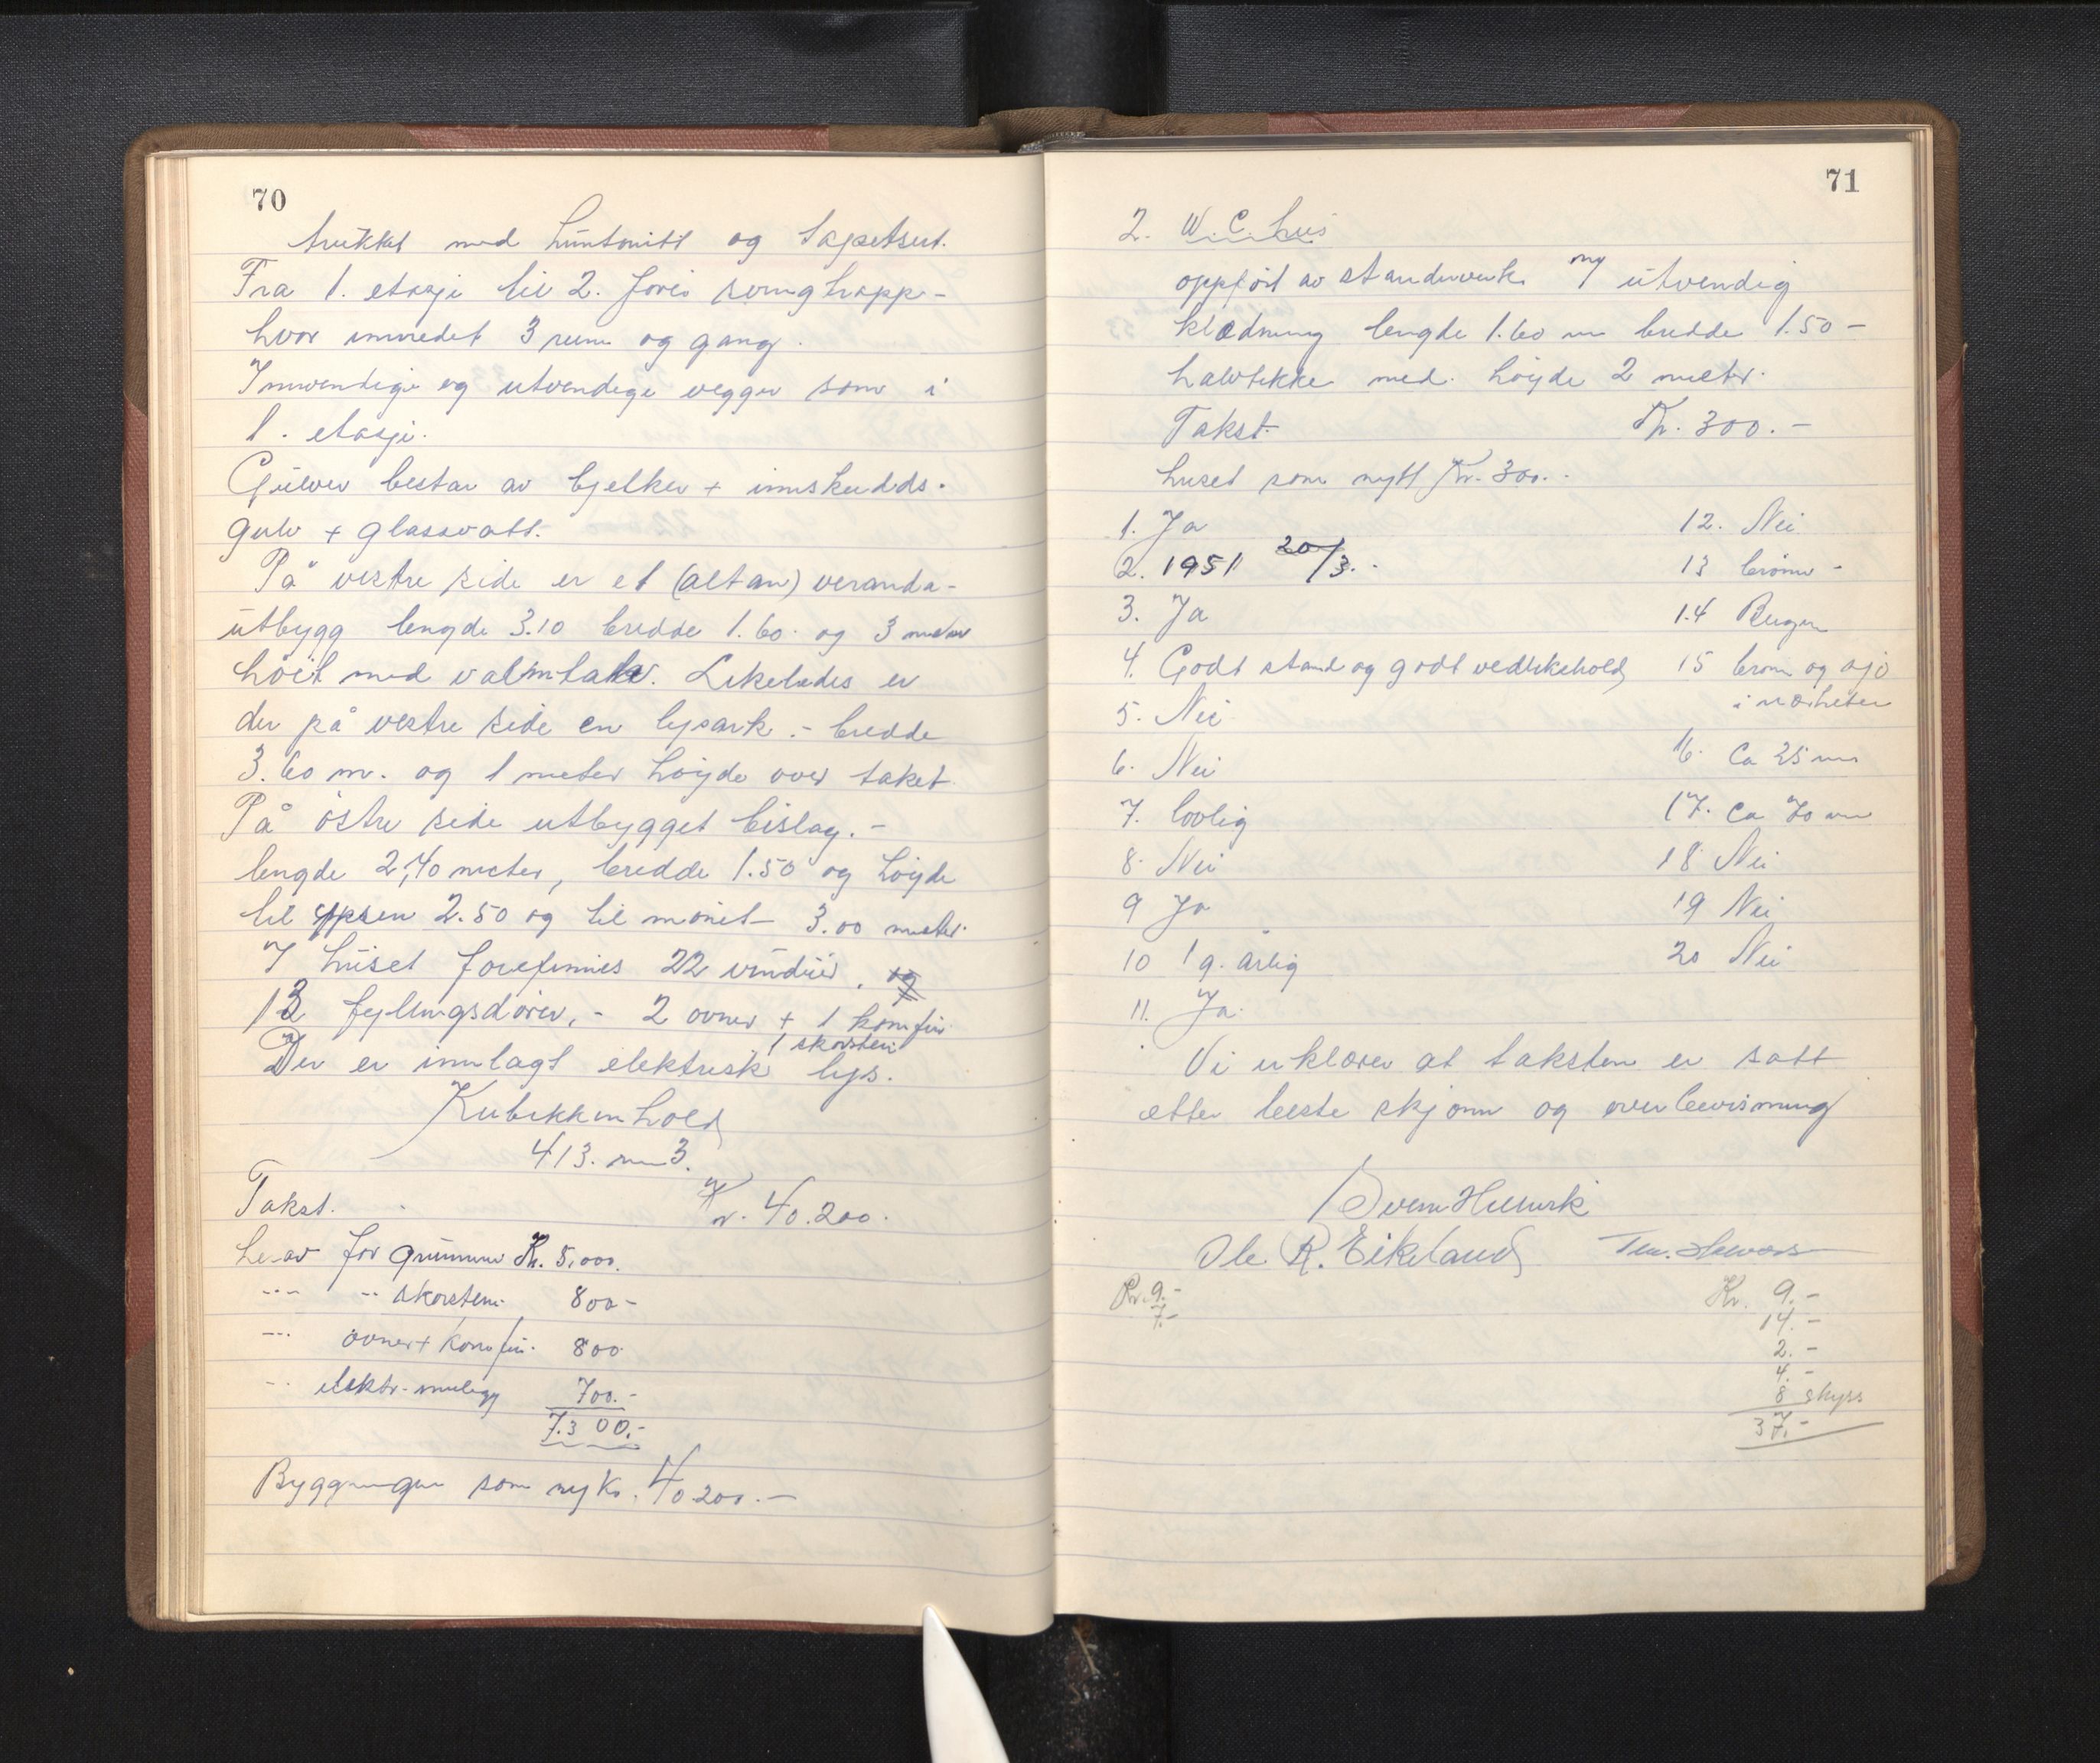 70
trukket med huntonitt og tapetsert.
Fra 1. etasje til 2. fører svingtrapp -
hvor innredet 3 rum og gang.
Innvendige og utvendige vegger som i
1. etasje.
Gulver bestar av bjelker + innskudds-
gulv + glassvatt.
På vestre side er et (altan) veranda-
utbygg lengde 3.10 bredde 1.60 og 3 meter
höit med valmtak. Likeledes er
der på vestre side en lysark. - bredde
3.60 m. og 1 meter høyde over taket
På östre side utbygget bislag. -
lengde 2,40 meter, bredde 1.50 og höyde
til gesimsen 2.50 og til mönet 3.00 meter.
I huset forefinnes 22 vinduer, og
13 fyllingsdører, - 2 ovner + 1 komfur
1 skorstein
Der er innlagt elektrisk lys.
Kubikkinhold
413. m3.
Takst. Kr. 40.200.
herav for grunnmur Kr. 5.000.
--- -- skorstein 800 -
--- ovner + komfur. 800
-- elektr. innlegg 700. -
7.300. -
Bygningen som ny Kr. 40.200. -
71
2. W.C. hus
oppfört av standerverk ny utvendig
klædning lengde 1.60 m bredde 1.50 -
halvtekke med höyde 2 meter.
Takst Kr. 300. -
huset som nytt Kr. 300. -
1. Ja 12. Nei
2. 1951 20/3. - 13 brönn -
3. Ja 14 Bergen
4. Godt stand og godt vedlikehold 15 brönn og sjö
i nærheten
5. Nei
6. Nei 16. Ca 25 m
7. lovlig 17. Ca 70 m
8. Nei 18 Nei
9 Ja 19 Nei
10 1 g. årlig 20 Nei
11. Ja.
Vi erklærer at taksten er satt
etter beste skjönn og overbevisning
Ole R. Eikeland
Kr. 9. - Kr. 9. -
7. - 14. -
2. -
4. -
8 skyss
37. -